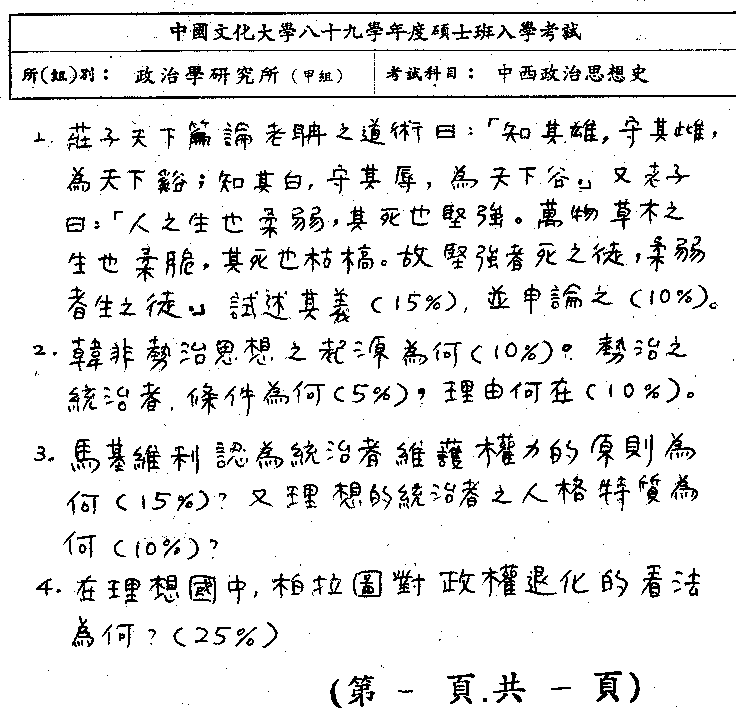 中國文化大學八十九學年度碩士班入學考試
所(組)別：政治學研究所(甲組) 考試科目：中西政治思想史
1. 莊子天下篇論老聃之道術曰：「知其雄，守其雌，
為天下谿；知其白，守其辱，為天下谷。」又老子
曰：「人之生也柔弱，其死也堅強。萬物草木之
生也柔脆，其死也枯槁。故堅強者死之徒，柔弱
者生之徒。」試述其義(15%)，並申論之(10%)。
2. 韓非勢治思想之起源為何(10%)？勢治之
統治者，條件為何(5%)，理由何在(10%)。
3. 馬基維利認為統治者維護權力的原則為
何(15%)？又理想的統治者之人格特質為
何(10%)？
4. 在理想國中，柏拉圖對政權退化的看法
為何？(25%)
(第一頁.共一頁)